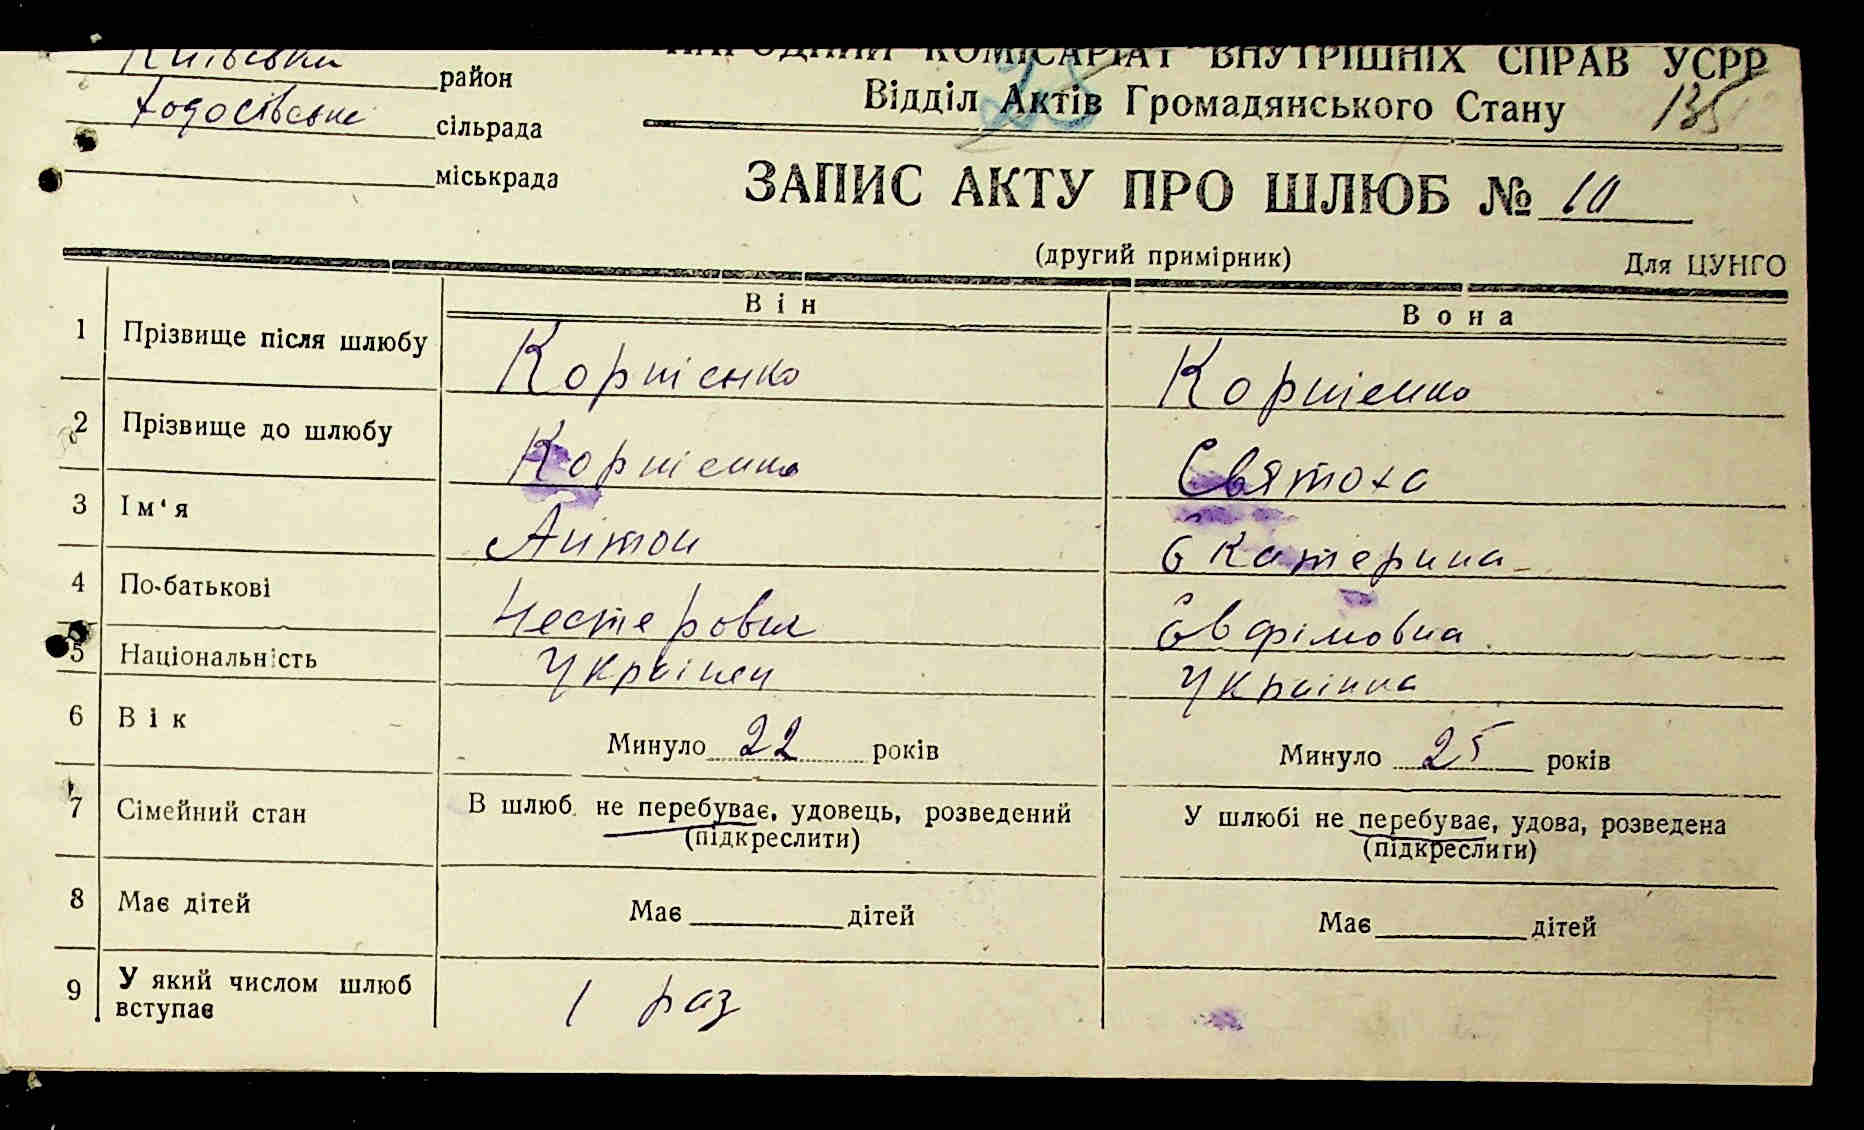 Київськи район
НАРОДНИЙ КОМІСАРІАТ ВНУТРІШНІХ СПРАВ УСРР
Ходосівське сільрада
Відділ Актів Громадянського Стану 135
міськрада
ЗАПИС АКТУ ПРО ШЛЮБ № 10
(другий примірник) Для ЦУНГО
Він Вона
1 Прізвище після шлюбу Корнієнко Корнієнко
2 Прізвище до шлюбу Корнієнко Святоха
3 Ім'я Антон Єкатерина
4 По-батькові Нестерович Євфімовна
5 Національність Українец Українка
6 Вік Минуло 22 років Минуло 25 років
7 Сімейний стан В шлюб не перебуває, удовець, розведений У шлюбі не перебуває, удова, розведена
(підкреслити) (підкреслити)
8 Має дітей Має дітей Має дітей
9 У який числом шлюб вступає 1 раз